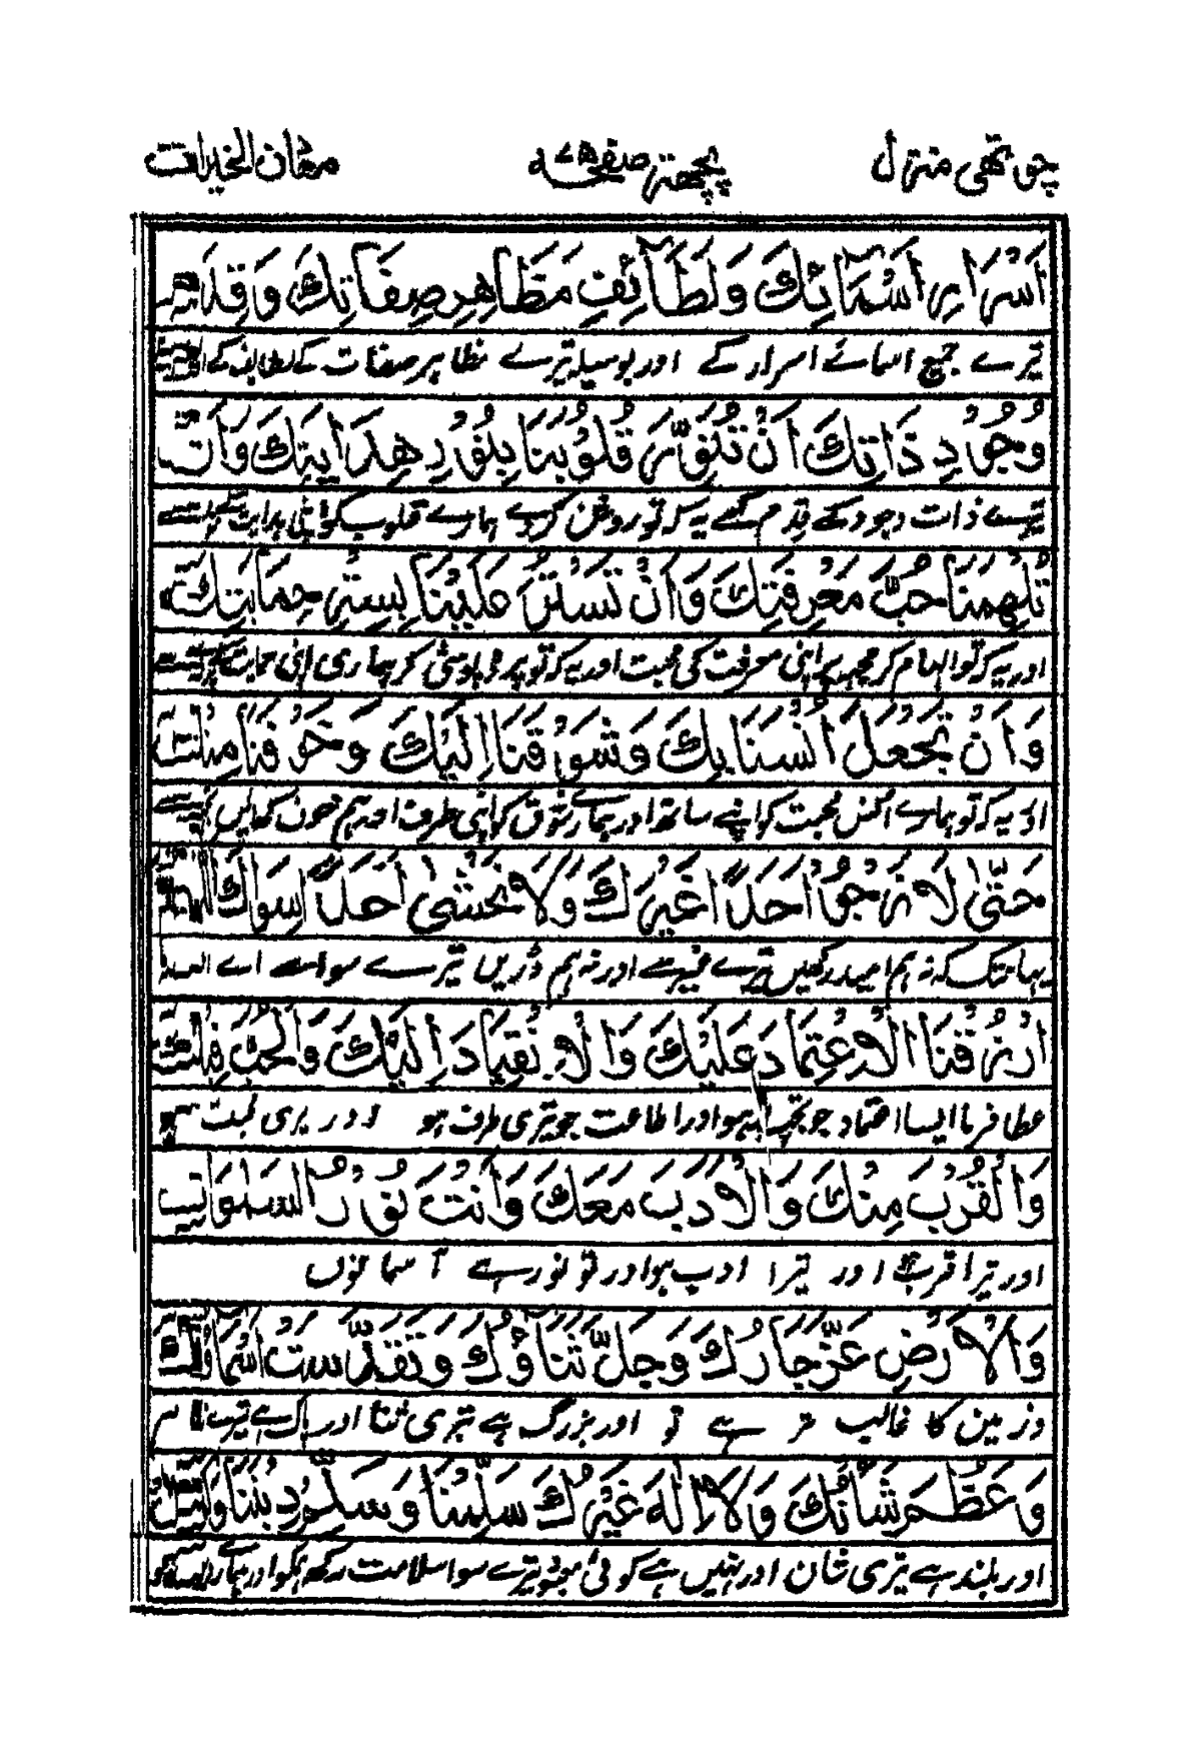 چوتھی منزل پچھتر صفحہ ۷۵ معان الخیرات
اَسْرَارِ اَسْمَآئِكَ وَلَطَآئِفِ مَظَاهِرِ صِفَاتِكَ وَقِدَمِ
تیرے جمیع اسمائے اسرار کے اور بوسیلہ تیرے مظاہر صفات کے لطایف کے
وُجُوْدِ ذَاتِكَ اَنْ تُنَوِّرَ قُلُوْبَنَا بِنُوْرِ هِدَايَتِكَ وَاَنْ
تیرے ذات وجود کے قدم کے یہ کہ تو روشن کردے ہمارے قلوب کو اپنی ہدایت کے
تُلْهِمَنَا حُبَّ مَعْرِفَتِكَ وَاَنْ تَسْتُرَ عَلَيْنَا بِسِتْرِ حِمَايَتِكَ
اور یہ کہ تو الہام کر مجھ پر اپنی معرفت کی محبت اور یہ کہ تو پردہ پوشی کر ہماری اپنی حمایت کے
وَاَنْ تَجْعَلَ اُنْسَنَا بِكَ وَشَوْقَنَا اِلَيْكَ وَخَوْفَنَا مِنْكَ
اور یہ کہ تو ہمارے انس محبت کو اپنے ساتھ اور ہمارے شوق کو اپنی طرف اور ہم خوف کھائیں
حَتّٰى لَا نَرْجُوْ اَحَدًا غَيْرَكَ وَلَا نَخْشٰى اَحَدًا سِوَاكَ اَللّٰهُمَّ
یہانتک کہ نہ ہم امید رکھیں تیرے غیر سے اور نہ ہم ڈریں تیرے سوا سے اے اللہ
ارْزُقْنَا الْاِعْتِمَادَ عَلَيْكَ وَالْاِنْقِيَادَ اِلَيْكَ وَالْحُبَّ فِيْكَ
عطا فرما ایسا اعتماد جو تجھ پہ ہو اور اطاعت جو تیری طرف ہو اور تیری محبت ہو
وَالْقُرْبَ مِنْكَ وَالْاَدَبَ مَعَكَ وَاَنْتَ نُوْرُ السَّمٰوَاتِ
اور تیرا قرب ہے اور تیرا ادب ہو اور تو نور ہے آسمانوں
وَالْاَرْضِ عَزَّ جَارُكَ وَجَلَّ ثَنَاؤُكَ وَتَقَدَّسَتْ اَسْمَاؤُكَ
و زمین کا غالب تر ہے تو اور بزرگ ہے تیری ثنا اور پاک ہے تیرے نام
وَعَظُمَ شَاْنُكَ وَلَا اِلٰهَ غَيْرُكَ سَلِّمْنَا وَسَلِّمْ دِيْنَنَا
اور بلند ہے تیری شان اور نہیں ہے کوئی معبود تیرے سوا سلامت رکھ ہمکو اور ہمارے